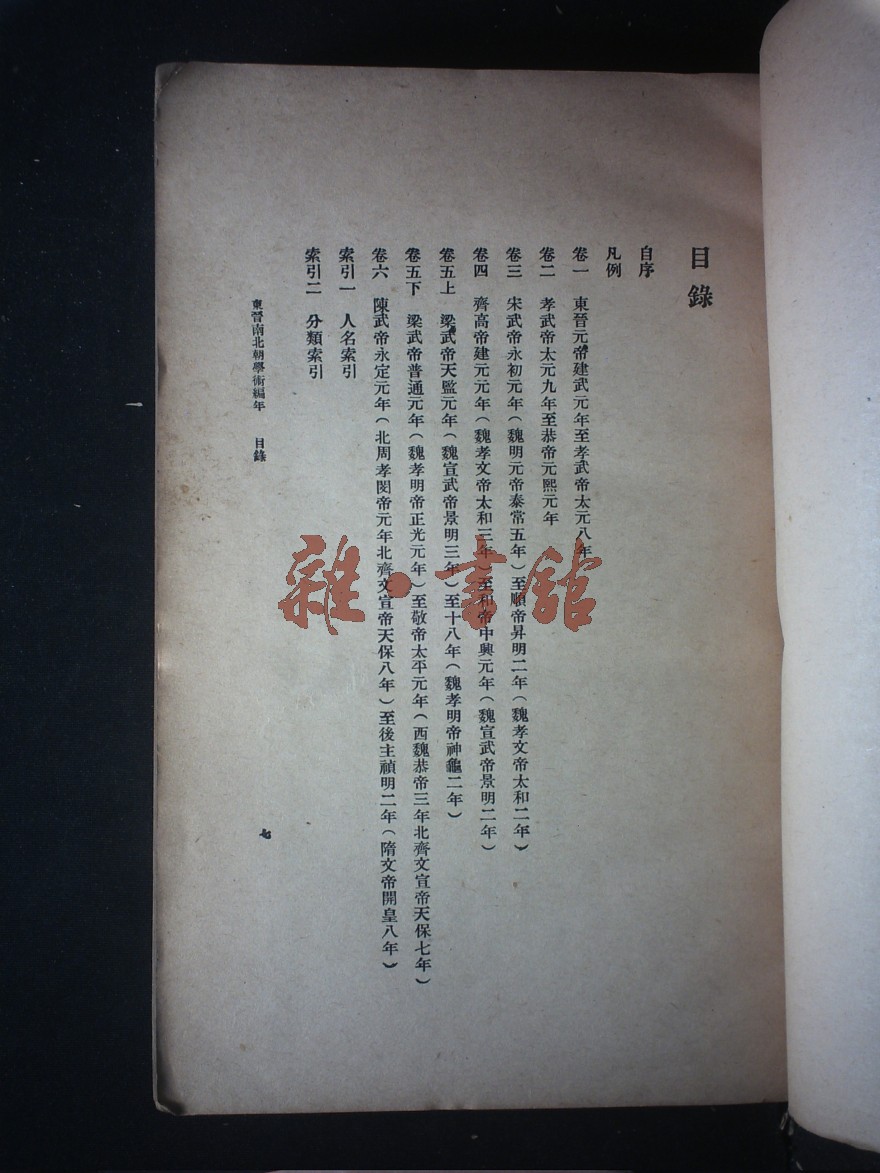 目錄
自序
凡例
卷一　東晉元帝建武元年至孝武帝太元八年
卷二　孝武帝太元九年至恭帝元熙元年
卷三　宋武帝永初元年（魏明元帝泰常五年）至順帝昇明二年（魏孝文帝太和二年）
卷四　齊高帝建元元年（魏孝文帝太和三年）至和帝中興元年（魏宣武帝景明二年）
卷五上　梁武帝天監元年（魏宣武帝景明三年）至十八年（魏孝明帝神龜二年）
卷五下　梁武帝普通元年（魏孝明帝正光元年）至敬帝太平元年（西魏恭帝三年北齊文宣帝天保七年）
卷六　陳武帝永定元年（北周孝閔帝元年北齊文宣帝天保八年）至後主禎明二年（隋文帝開皇八年）
索引一　人名索引
索引二　分類索引
東晉南北朝學術編年　目錄
七
雜·書館